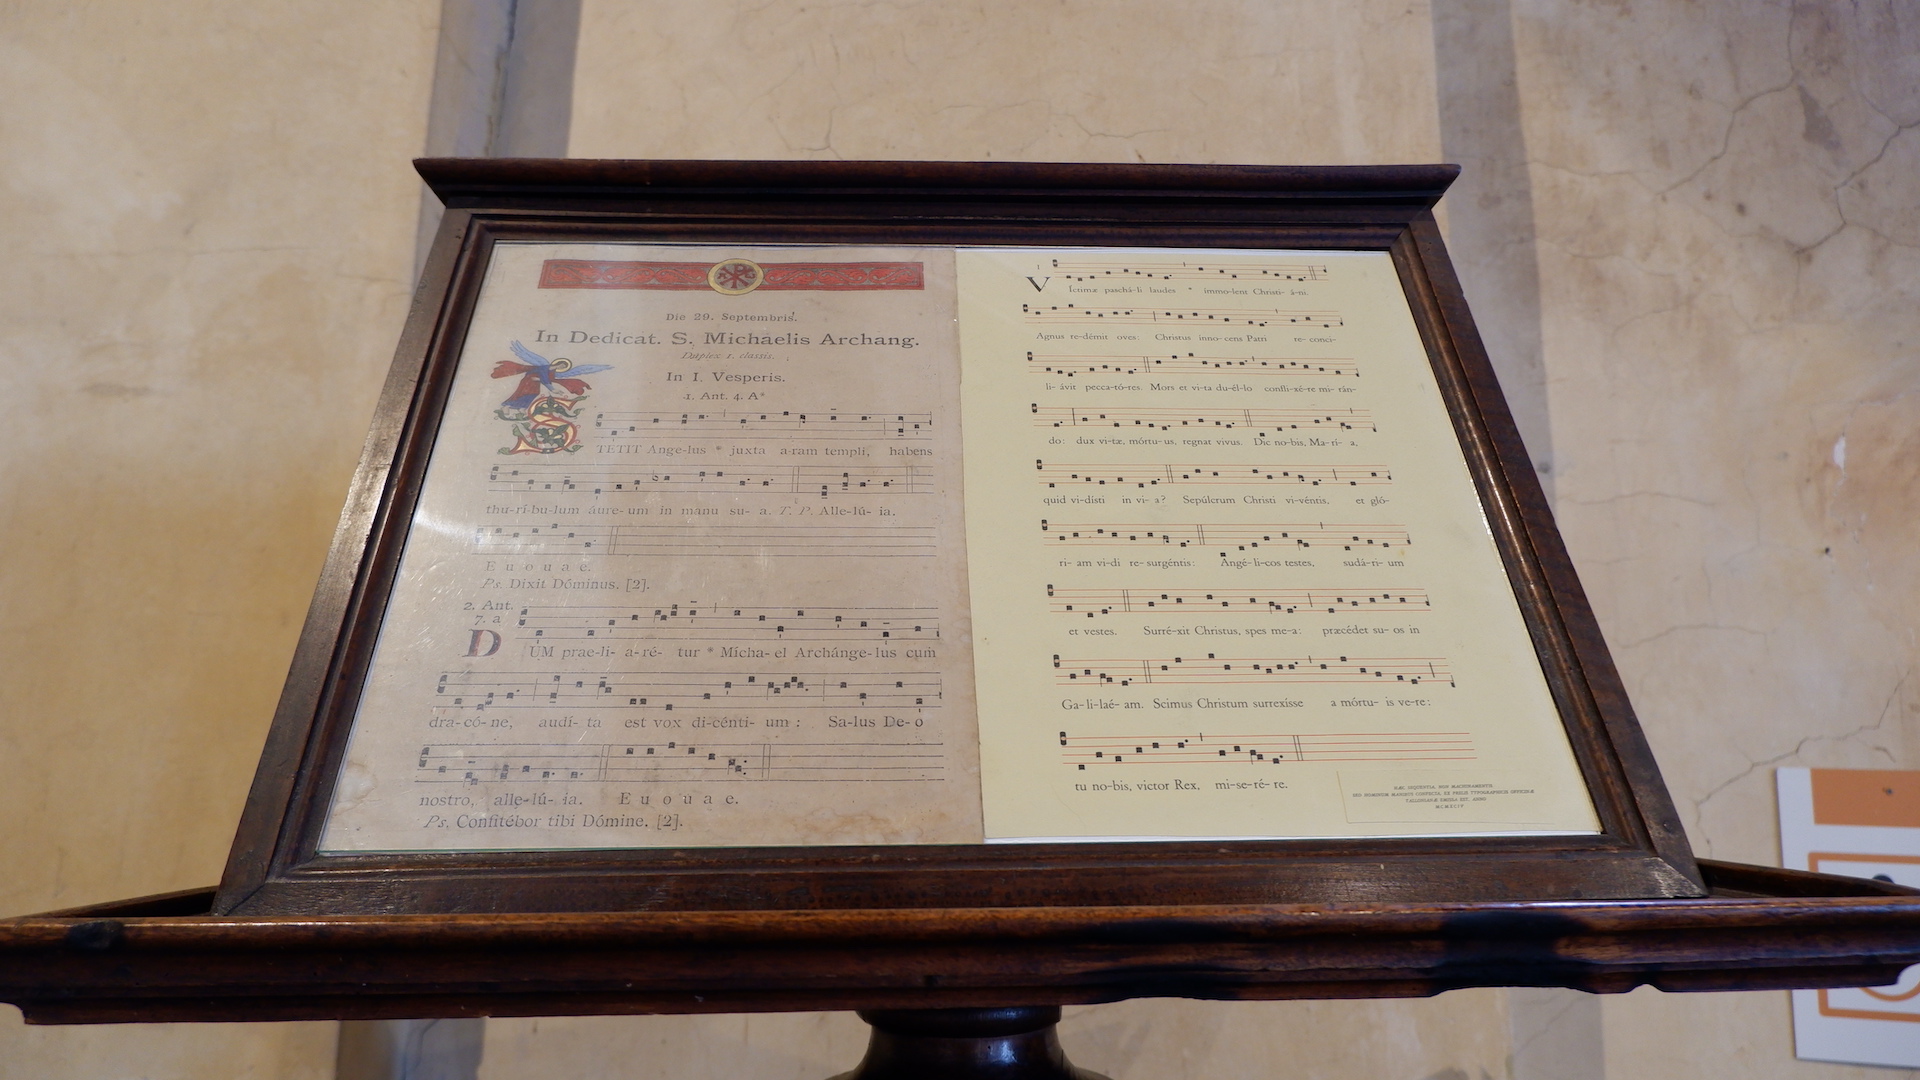 Die 29. Septembris.
In Dedicat. S. Michaelis Archang.
Duplex 1. classis.
In I. Vesperis.
1. Ant. 4. A*
STETIT Ange-lus * juxta a-ram templi, habens
thu-rí-bu-lum áure-um in manu su- a. T. P. Alle-lú- ia.
E u o u a e.
Ps. Dixit Dóminus. [2].
2. Ant.
7. a
DUM prae-li- a-ré- tur * Micha- el Archánge-lus cum
dra-có-ne, audí- ta est vox di-cénti- um : Sa-lus De- o
nostro, alle-lú- ia. E u o u a e.
Ps. Confitébor tibi Dómine. [2].
VIctimæ paschá-li laudes * ímmo-lent Christi- á-ni.
Agnus re-démit oves: Christus inno-cens Patri re- conci-
li- ávit pecca-tó-res. Mors et vi-ta du-él-lo confli-xé-re mi- rán-
do: dux vi-tæ, mórtu-us, regnat vivus. Dic no-bis, Ma-rí- a,
quid vi-dísti in vi- a? Sepúlcrum Christi vi-véntis, et gló-
ri- am vi-di re-surgéntis: Angé-li-cos testes, sudá-ri- um
et vestes. Surré-xit Christus, spes me-a: præcédet su- os in
Ga-li-laé- am. Scimus Christum surrexísse a mórtu- is ve-re:
tu no-bis, victor Rex, mi-se-ré-re.